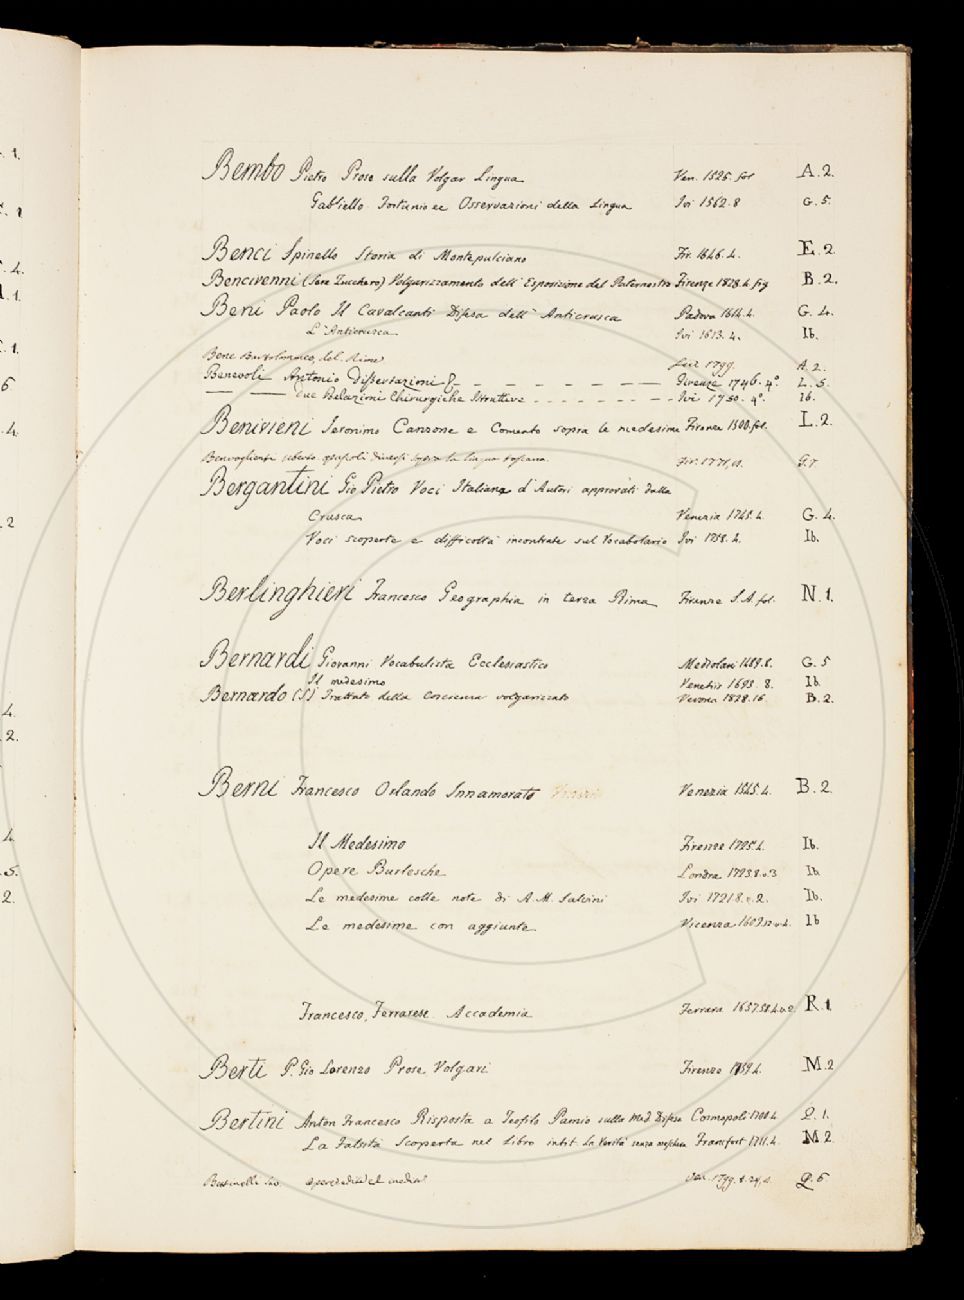 Bembo Pietro Prose sulla Volgar Lingua Ven. 1525. fol A. 2.
Gabriello Fortunio ec Osservazioni della Lingua Ivi 1562. 8 G. 5.
Benci Spinello Storia di Montepulciano Fir. 1646. 4. E. 2
Bencivenni (Sere Zucchero) Volgarizzamento dell' Esposizione del Paternostro Firenze 1828. 4. fig B. 2.
Beni Paolo Il Cavalcanti Difesa dell' Anticrusca Padova 1614. 4. G. 4.
L'Anticrusca Ivi 1613. 4. Ib.
Bene Bartolomeo, del Rime 1799. A. 2.
Benevoli Antonio Dissertazioni Firenze 1746. 4º. L. 5.
due Relazioni Chirurgiche Istruttive Ivi 1750. 4º. Ib.
Benivieni Jeronimo Canzone e Comento sopra la medesima Firenze 1500. fol. L. 2.
Benvoglienti diversi sopra la lingua toscana. Fir. 1771.
Bergantini Gio Pietro Voci Italiane d'Autori approvati dalla
Crusca Venezia 1745. 4. G. 4.
Voci scoperte e difficoltà incontrate sul Vocabolario Ivi 1758. 4. Ib.
Berlinghieri Francesco Geographia in terza Rima Firenze S. A. fol. N. 1.
Bernardi Giovanni Vocabulista Ecclesiastico Mediolani 1489. 8. G. 5
Il medesimo Venetiis 1693. 8. Ib.
Bernardo (S) Trattato della Coscienza volgarizzato Verona 1828. 16 B. 2.
Berni Francesco Orlando Innamorato Venezia 1545. 4. B. 2.
Il Medesimo Firenze 1725. 4. Ib.
Opere Burlesche Londra 1723. 8. v. 3 Ib.
Le medesime colle note di A. M. Salvini Ivi 1721 8. v. 2. Ib.
Le medesime con aggiunte Vicenza 1609. 12 Ib
Francesco, Ferrarese Accademia Ferrara R. 1.
Berti P. Gio Lorenzo Prose Volgari Firenze 1759. 4. M. 2
Bertini Anton Francesco Risposta a Teofilo sulla Med Difesa Cosmopoli 1700. 4. Q. 1.
La Falsità Scoperta nel libro intit. La Verità senza maschera Francfort 1711. 4. M. 2.
opere Ven. 1799. Q. 6